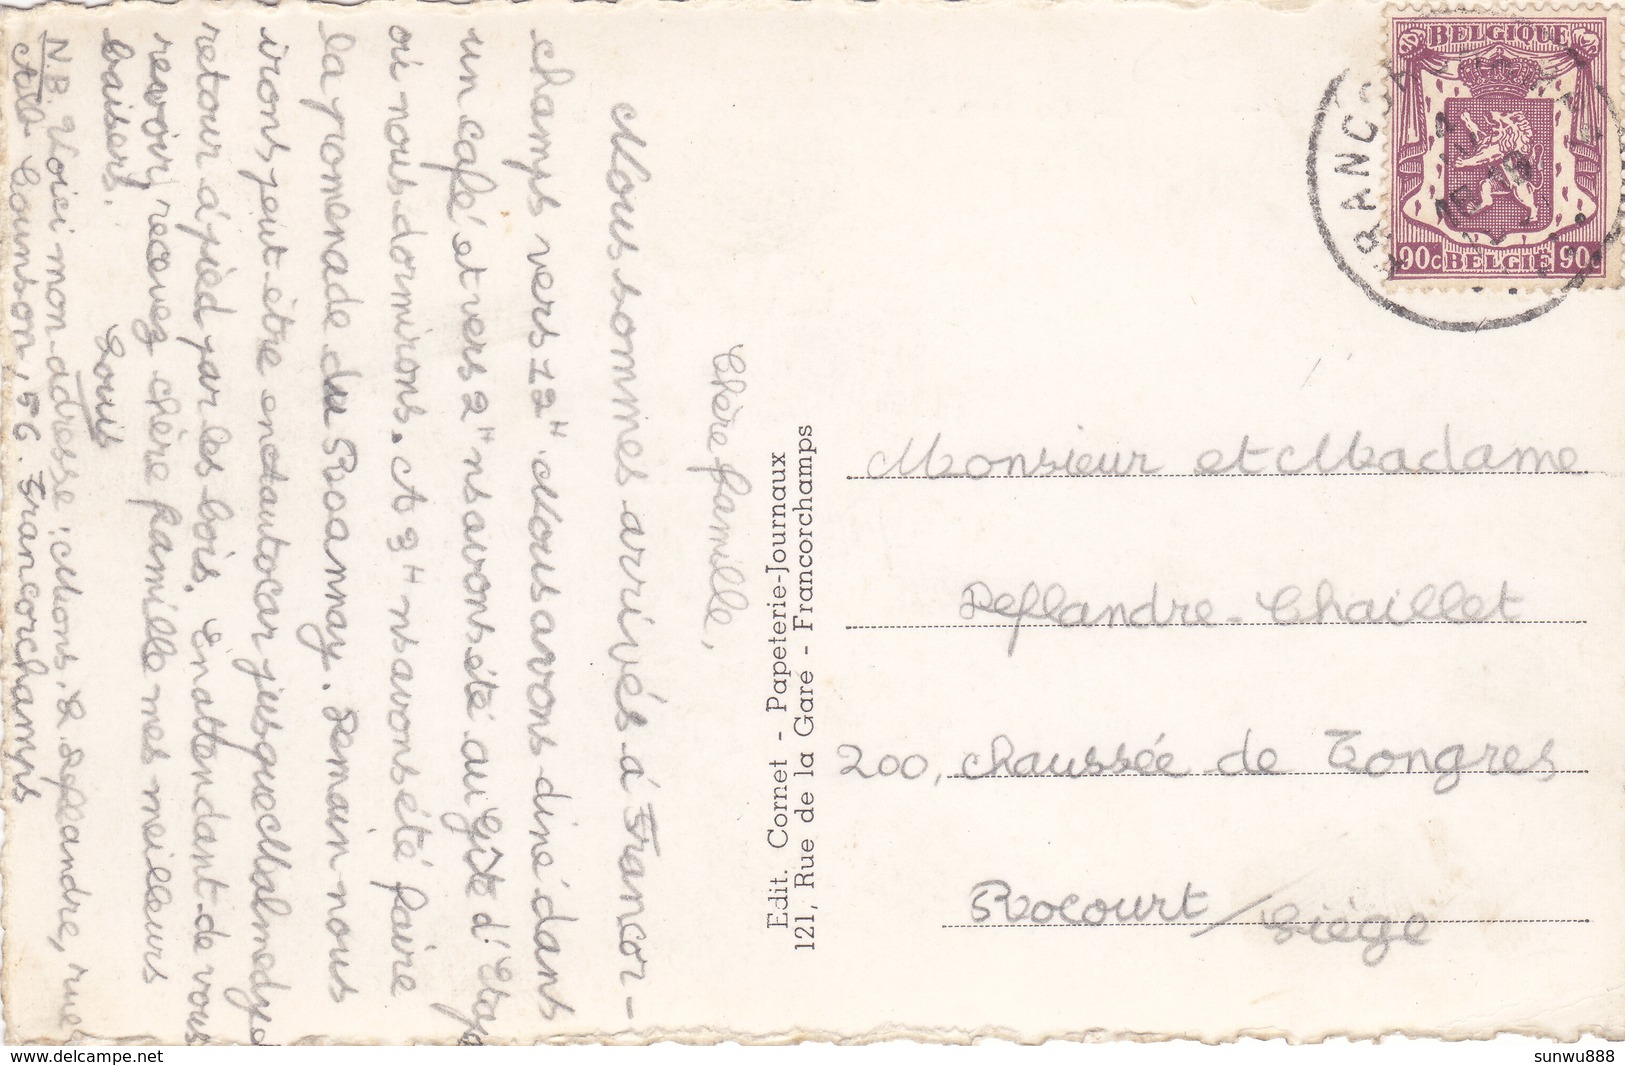 Chère famille,
Nous sommes arrivés á Francor-
champs vers 12H. Nous avons diné dans
un café et vers 2H ns avons été au Gîte d'Etape
où nous dormirons. A 3H ns avons été faire
la promenade du Roannay. Demain nous
irons peut être en autocar jusque Malmedy et
retour à pied par les bois. En attendant de vous
revoir, recevez chère famille mes meilleurs
baisers.
Louis
N.B. Voici mon adresse: Mons. L Deflandre, rue
Albé Counson, 56. Francorchamps
Edit. Cornet - Papeterie-Journaux
121, Rue de la Gare - Francorchamps
BELGIQUE
90c BELGIË 90c
FRANCORCHAMPS
Monsieur et Madame
Deflandre-Chaillet
200, chaussée de Tongres
Rocourt / Liége
www.delcampe.net
sunwu888